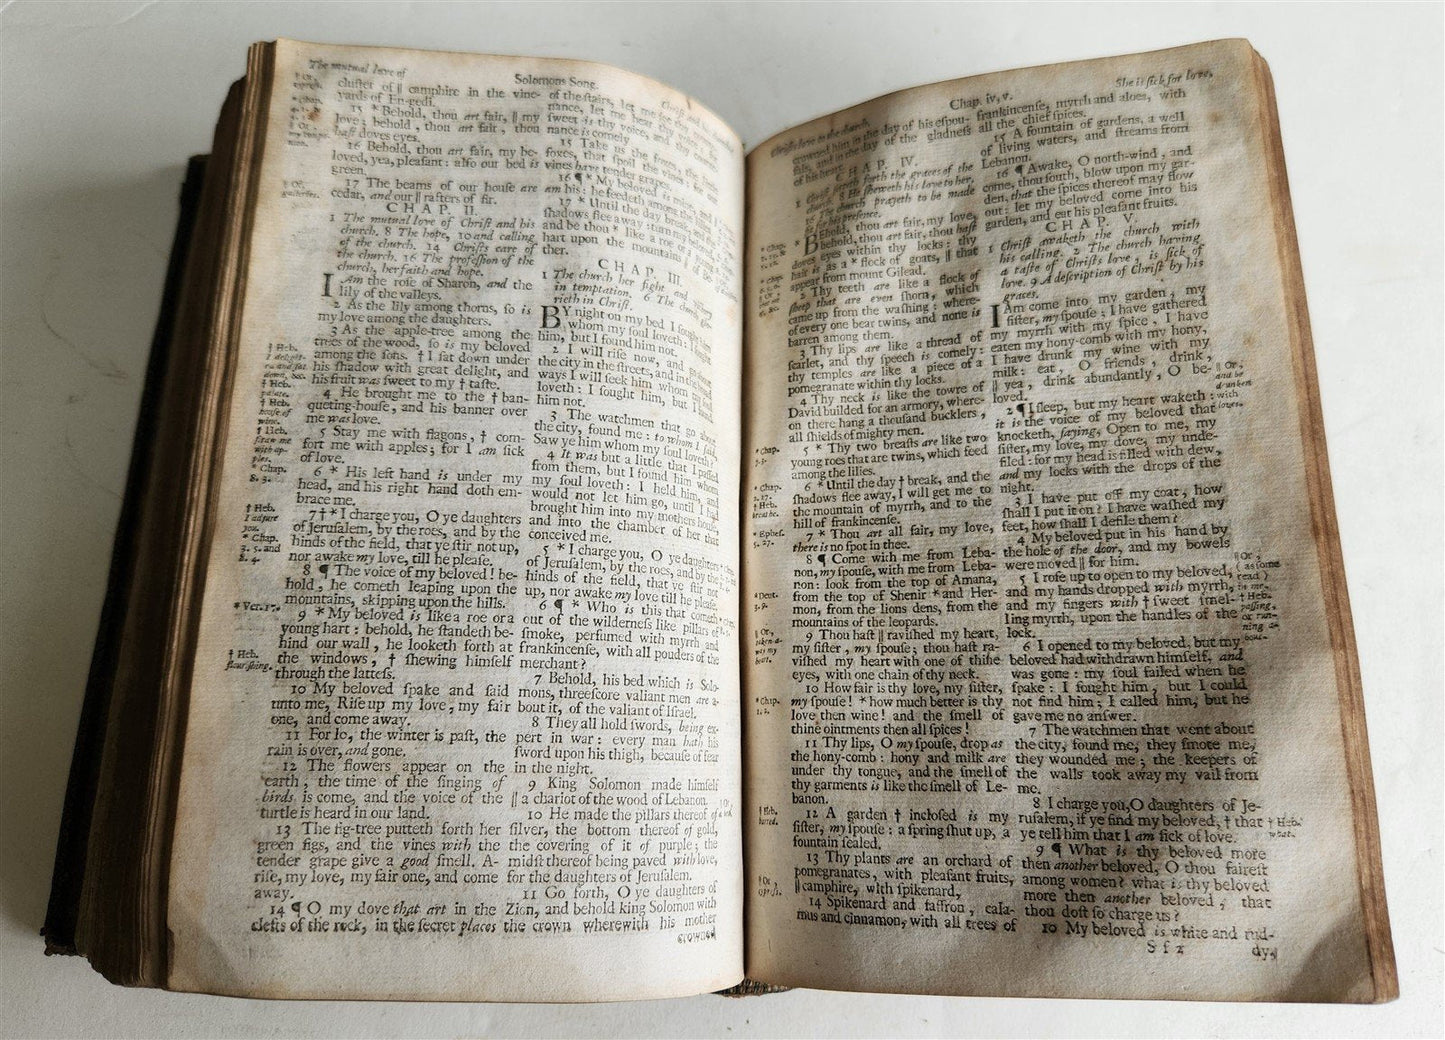 The mutual love of
Solomons Song.
cluster of || camphire in the vine-
yards of En-gedi.
15 * Behold, thou art fair, || my
love; behold, thou art fair, thou
hast doves eyes.
16 Behold, thou art fair, my be-
loved, yea, pleasant: also our bed is
green.
17 The beams of our house are
cedar, and our || rafters of fir.
CHAP. II.
1 The mutual love of Christ and his
church. 8 The hope, 10 and calling
of the church. 14 Christs care of
the church. 16 The profession of the
church, her faith and hope.
I Am the rose of Sharon, and the
lily of the valleys.
2 As the lily among thorns, so is
my love among the daughters.
3 As the apple-tree among the
trees of the wood, so is my beloved
among the sons. † I sat down under
his shadow with great delight, and
his fruit was sweet to my † taste.
4 He brought me to the † ban-
queting-house, and his banner over
me was love.
5 Stay me with flagons, † com-
fort me with apples; for I am sick
of love.
6 * His left hand is under my
head, and his right hand doth em-
brace me.
7 † * I charge you, O ye daughters
of Jerusalem, by the roes, and by the
hinds of the field, that ye stir not up,
nor awake my love, till he please.
8 ¶ The voice of my beloved! be-
hold, he cometh leaping upon the
mountains, skipping upon the hills.
9 * My beloved is like a roe or a
young hart: behold, he standeth be-
hind our wall, he looketh forth at
the windows, † shewing himself
through the lattess.
10 My beloved spake and said
unto me, Rise up my love, my fair
one, and come away.
11 For lo, the winter is past, the
rain is over, and gone.
12 The flowers appear on the
earth, the time of the singing of
birds is come, and the voice of the
turtle is heard in our land.
13 The fig-tree putteth forth her
green figs, and the vines with the
tender grape give a good smell. A-
rise, my love, my fair one, and come
away.
14 ¶ O my dove that art in the
clefts of the rock, in the secret places
of the stairs, let me
nance, let me hear thy
sweet is thy voice, and thy
nance is comely
15 Take us the foxes, the
foxes, that spoil the vines: for our
vines have tender grapes.
16 ¶ * My beloved is mine, and I
am his: he feedeth among the
17 * Until the day break, and the
shadows flee away: turn my beloved,
and be thou * like a roe or a
hart upon the mountains of
ther.
CHAP. III.
1 The church her fight and victory
in temptation. 6 The church glo-
rieth in Christ.
BY night on my bed I sought him
whom my soul loveth: I sought
him, but I found him not.
2 I will rise now, and go about
the city in the streets, and in the broad
ways I will seek him whom my soul
loveth: I sought him, but I found
him not.
3 The watchmen that go about
the city, found me: to whom I said,
Saw ye him whom my soul loveth?
4 It was but a little that I passed
from them, but I found him whom
my soul loveth: I held him, and
would not let him go, until I had
brought him into my mothers house,
and into the chamber of her that
conceived me.
5 * I charge you, O ye daughters
of Jerusalem, by the roes, and by the
hinds of the field, that ye stir not
up, nor awake my love till he please.
6 ¶ * Who is this that cometh
out of the wilderness like pillars of
smoke, perfumed with myrrh and
frankincense, with all pouders of the
merchant?
7 Behold, his bed which is Solo-
mons, threescore valiant men are a-
bout it, of the valiant of Israel.
8 They all hold swords, being ex-
pert in war: every man hath his
sword upon his thigh, because of fear
in the night.
9 King Solomon made himself
|| a chariot of the wood of Lebanon.
10 He made the pillars thereof of
silver, the bottom thereof of gold,
the covering of it of purple; the
midst thereof being paved with love,
for the daughters of Jerusalem.
11 Go forth, O ye daughters of
Zion, and behold king Solomon with
the crown wherewith his mother
crowned
Christs love to the church.
Chap. iv, v.
She is sick for love.
crowned him in the day of his espou-
sals, and in the day of the gladness
of his heart.
CHAP. IV.
1 Christ setteth forth the graces of the
church. 8 He sheweth his love to her,
16 The church prayeth to be made
fit for his presence.
* BEhold, thou art fair, my love,
behold, thou art fair, thou hast
doves eyes within thy locks: thy
hair is as a * flock of goats, || that
appear from mount Gilead.
2 Thy teeth are like a flock of
sheep that are even shorn, which
came up from the washing: where-
of every one bear twins, and none is
barren among them.
3 Thy lips are like a thread of
scarlet, and thy speech is comely:
thy temples are like a piece of a
pomegranate within thy locks.
4 Thy neck is like the towre of
David builded for an armory, where-
on there hang a thousand bucklers,
all shields of mighty men.
5 * Thy two breasts are like two
young roes that are twins, which feed
among the lilies.
6 * Until the day † break, and the
shadows flee away, I will get me to
the mountain of myrrh, and to the
hill of frankincense.
7 * Thou art all fair, my love,
there is no spot in thee.
8 ¶ Come with me from Leba-
non, my spouse, with me from Leba-
non: look from the top of Amana,
from the top of Shenir * and Her-
mon, from the lions dens, from the
mountains of the leopards.
9 Thou hast || ravished my heart,
my sister, my spouse; thou hast ra-
vished my heart with one of thine
eyes, with one chain of thy neck.
10 How fair is thy love, my sister,
my spouse! * how much better is thy
love then wine! and the smell of
thine ointments then all spices!
11 Thy lips, O my spouse, drop as
the hony-comb: hony and milk are
under thy tongue, and the smell of
thy garments is like the smell of Le-
banon.
12 A garden † inclosed is my
sister, my spouse: a spring shut up, a
fountain sealed.
13 Thy plants are an orchard of
pomegranates, with pleasant fruits,
|| camphire, with spikenard,
14 Spikenard and saffron, cala-
mus and cinnamon, with all trees of
frankincense, myrrh and aloes, with
all the chief spices.
15 A fountain of gardens, a well
of living waters, and streams from
Lebanon.
16 ¶ Awake, O north-wind, and
come, thou south, blow upon my gar-
den, that the spices thereof may flow
out: let my beloved come into his
garden, and eat his pleasant fruits.
CHAP. V.
1 Christ awaketh the church with
his calling. 2 The church having
a taste of Christs love, is sick of
love. 9 A description of Christ by his
graces.
I Am come into my garden, my
sister, my spouse; I have gathered
my myrrh with my spice, I have
eaten my hony-comb with my hony,
I have drunk my wine with my
milk: eat, O friends, drink,
|| yea, drink abundantly, O be-
loved.
2 ¶ I sleep, but my heart waketh:
it is the voice of my beloved that
knocketh, saying, Open to me, my
sister, my love, my dove, my unde-
filed: for my head is filled with dew,
and my locks with the drops of the
night.
3 I have put off my coat, how
shall I put it on? I have washed my
feet, how shall I defile them?
4 My beloved put in his hand by
the hole of the door, and my bowels
were moved || for him.
5 I rose up to open to my beloved,
and my hands dropped with myrrh,
and my fingers with † sweet smel-
ling myrrh, upon the handles of the
lock.
6 I opened to my beloved, but my
beloved had withdrawn himself, and
was gone: my soul failed when he
spake: I sought him, but I could
not find him; I called him, but he
gave me no answer.
7 The watchmen that went about
the city, found me, they smote me,
they wounded me; the keepers of
the walls took away my vail from
me.
8 I charge you, O daughters of Je-
rusalem, if ye find my beloved, † that
ye tell him that I am sick of love.
9 ¶ What is thy beloved more
then another beloved, O thou fairest
among women? what is thy beloved
more then another beloved, that
thou dost so charge us?
10 My beloved is white and rud-
S f 2
dy,